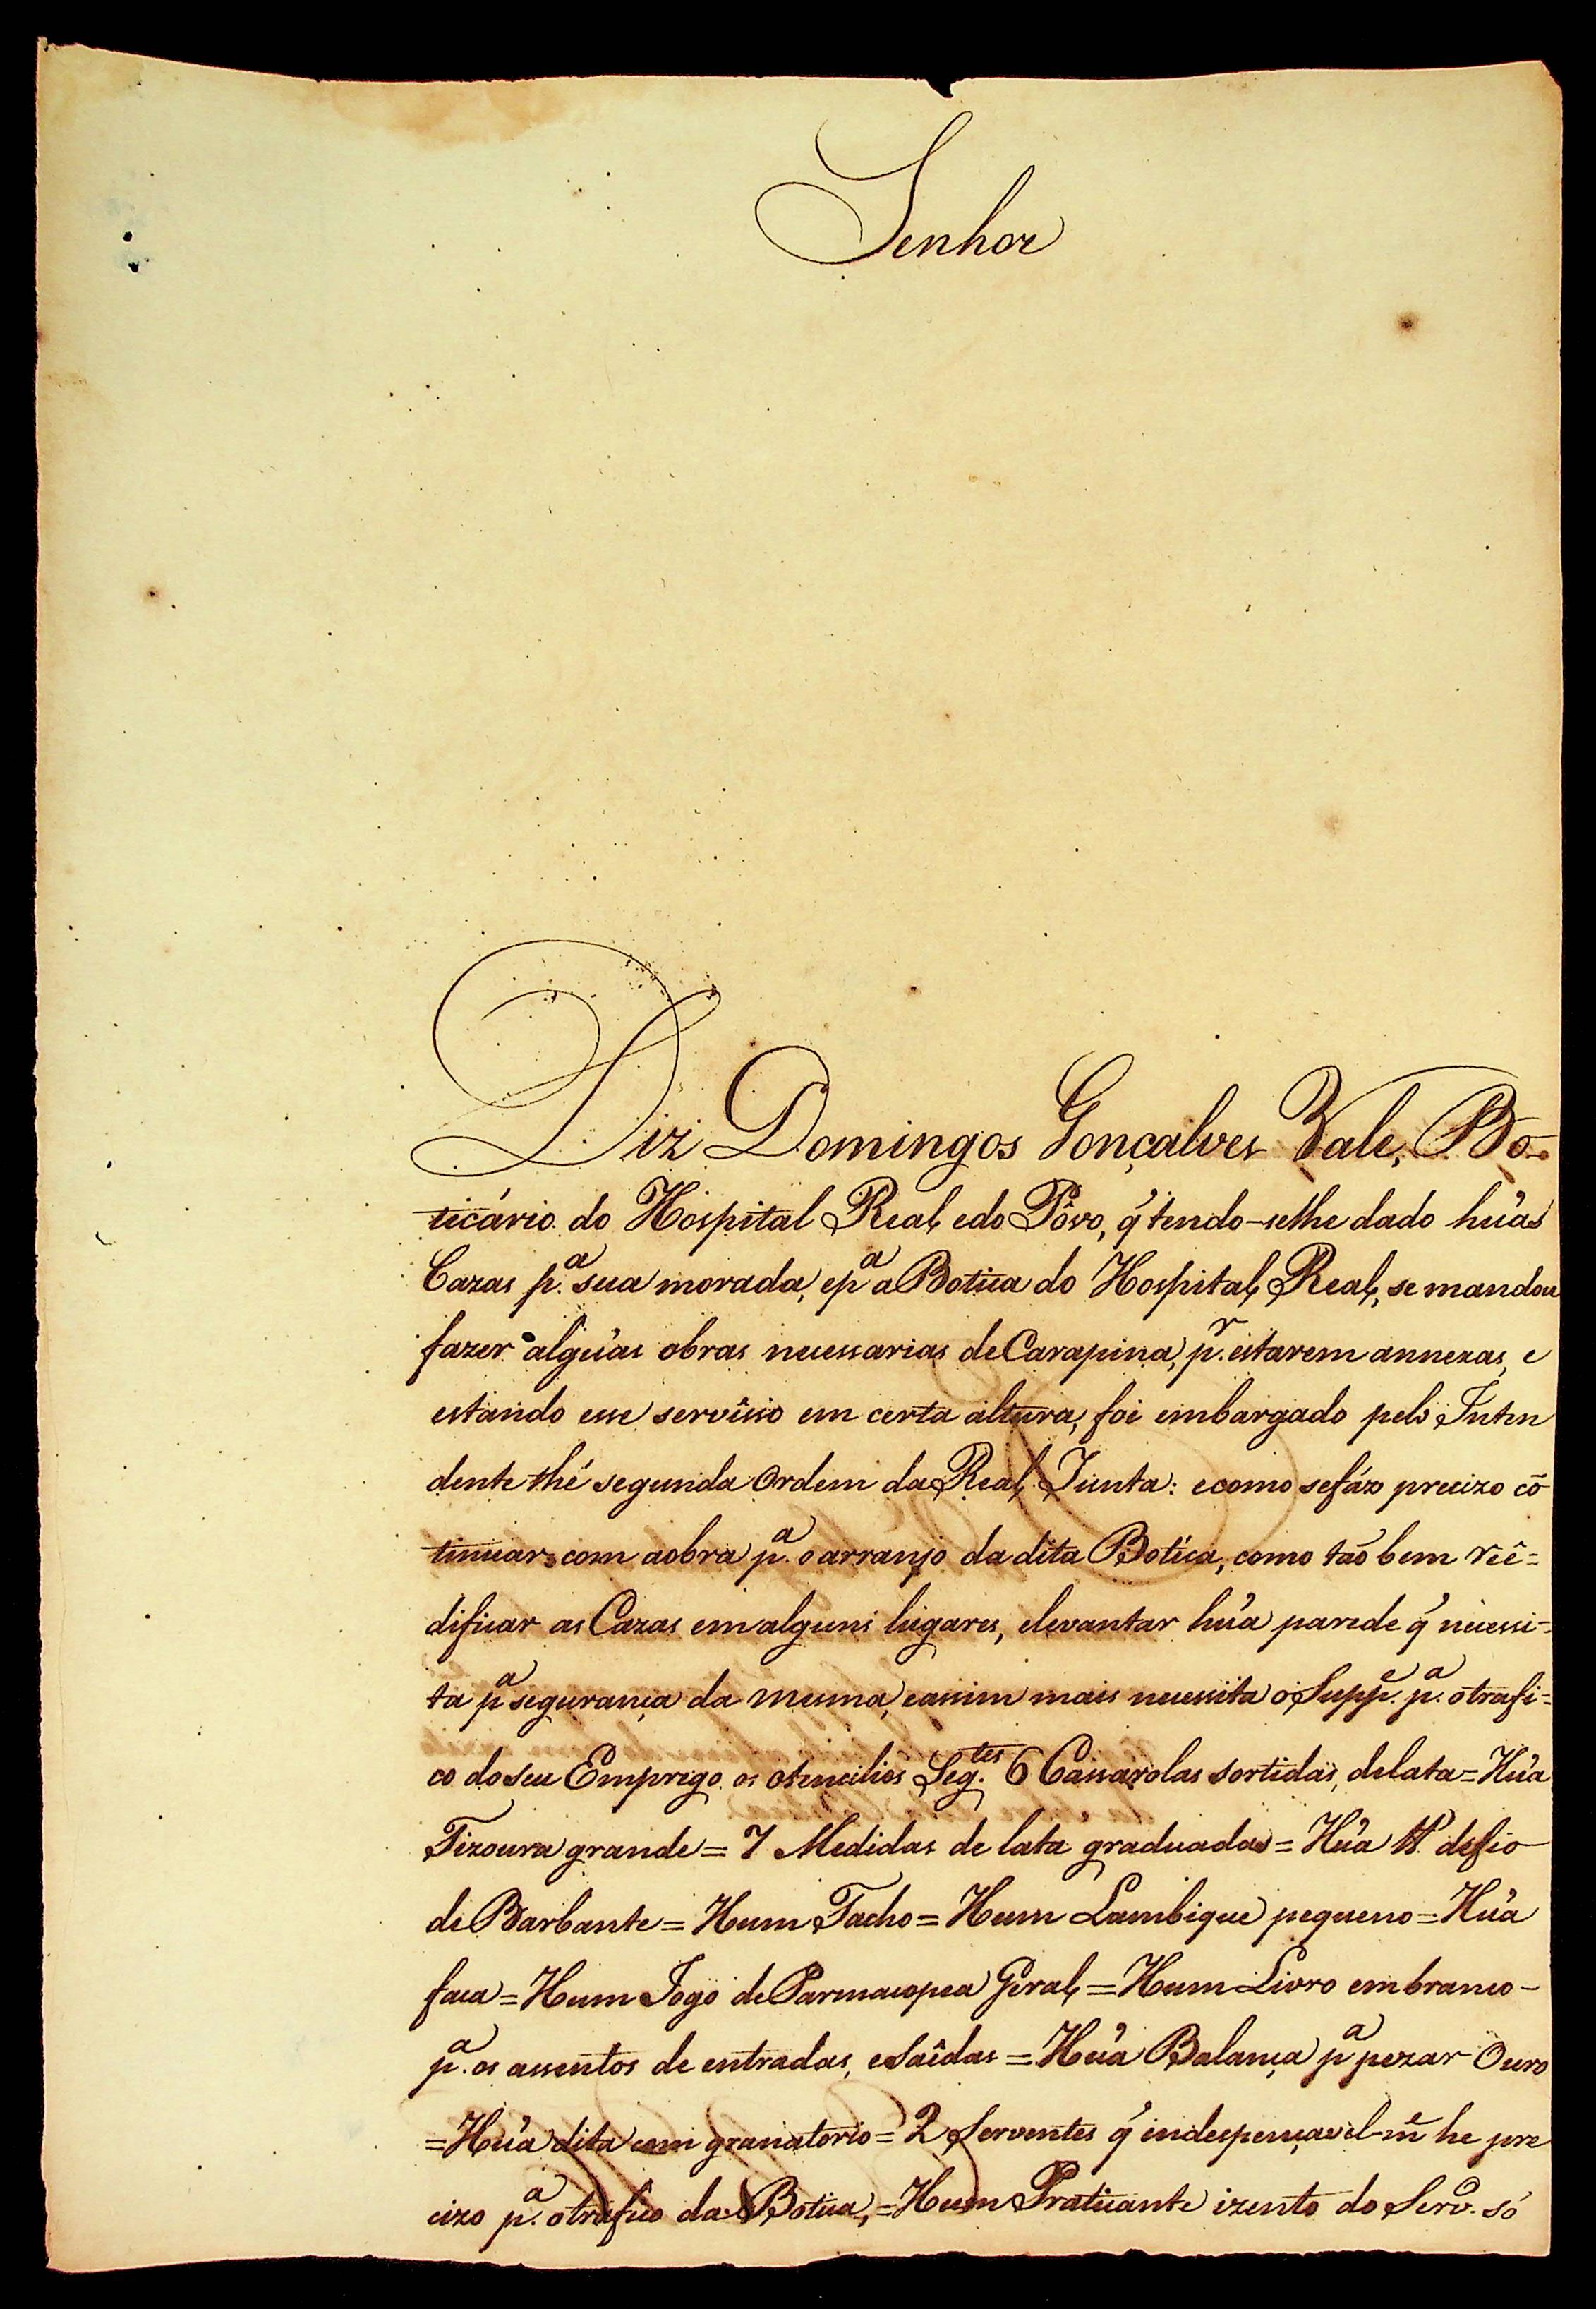 Senhor
Diz Domingos Gonçalves Vale, Bo-
ticário do Hospital Real, e do Pôvo, q' tendo-selhe dado hu'as
Cazas p.ª sua morada, e pª a Botica do Hospital Real, se mandou
fazer algu'as obras necessarias de Carapina, p.r estarem annexas, e
estando esse servîsso em certa altura, foi embargado pelo Inten
dente thé segunda Ordem da Real Junta: e como sefáz precizo cõ
tinuar com aobra pª. o arranjo da dita Botica, como tão bem reê=
dificar as Cazas em alguns lugares, elevantar hu'a parede q' necessi=
ta pª segurança da mesma, eassim mais necessita o Supp.e p.ª otrafi=
co do seu Emprego os otencilios Seg.tes 6 Cassarolas sortidas, delata = Hu'a
Tizoura grande = 7 Medidas de lata graduadas = Hu'a ℔ defio
de Barbante = Hum Tacho = Hum Lambique pequeno = Hu'a
faca = Hum Jogo de Parmacopea Geral = Hum Livro embranco -
p.ª os assentos de entradas, eSaîdas = Hu'a Balança pª pezar Ouro
= Hu'a dita com granatorio = 2 Serventes q' indespençavel-m.e he pre
cizo p.ª otrafico da Botica, = Hum Praticante izento do Servo. só